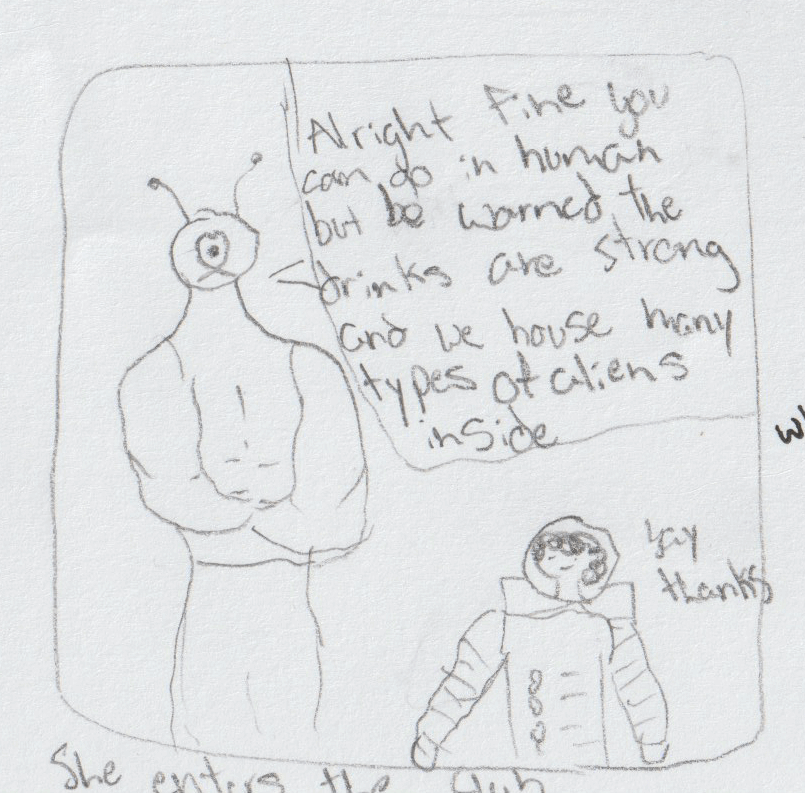 Alright Fine you
can go in human
but be warned the
drinks are strong
and we house many
types of aliens
inside
yay
thanks
She enters the club